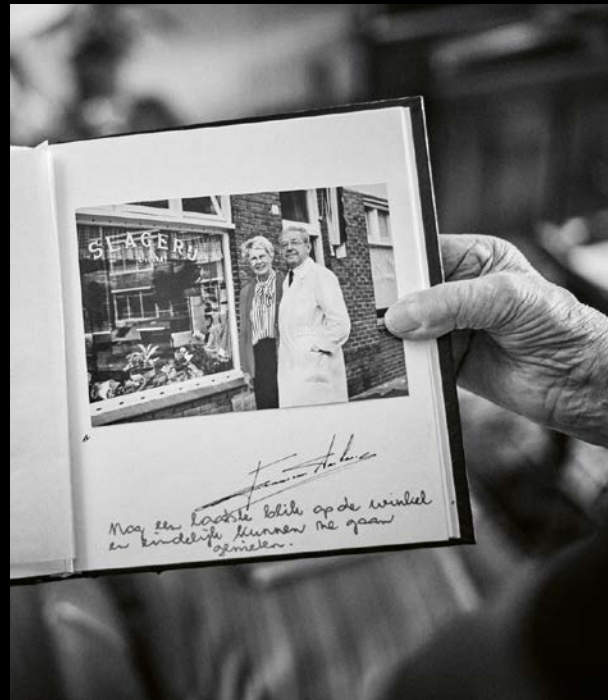 SLAGERIJ
Nog een laatste blik op de winkel
en eindelijk kunnen we gaan
genieten.